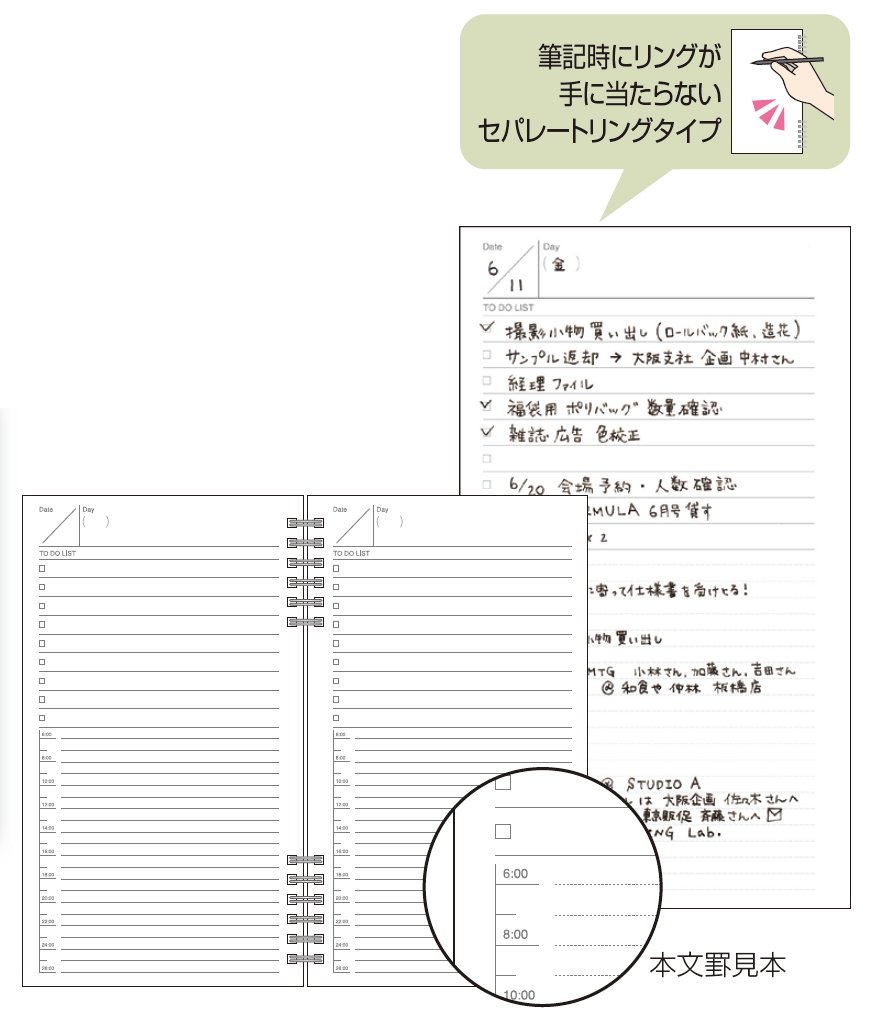 筆記時にリングが
手に当たらない
セパレートリングタイプ
Date Day
6/11 (金)
TO DO LIST
撮影小物買い出し(ロールバック紙、造花)
サンプル返却 → 大阪支社 企画 中村さん
経理ファイル
福袋用 ポリバッグ 数量確認
雑誌広告 色校正
6/20 会場予約・人数確認
RMULA 6月号貸す
x 2
に寄って仕様書を受けとる!
小物買い出し
MTG 小林さん,加藤さん,吉田さん
@ 和食や 仲林 板橋店
@ STUDIO A
しは 大阪企画 佐々木さんへ
東京販促 斉藤さんへ
NG Lab.
Date Day
( )
TO DO LIST
6:00
8:00
10:00
12:00
14:00
16:00
18:00
20:00
22:00
24:00
26:00
Date Day
( )
TO DO LIST
6:00
8:00
10:00
12:00
14:00
16:00
18:00
20:00
22:00
24:00
26:00
6:00
8:00
10:00
本文罫見本